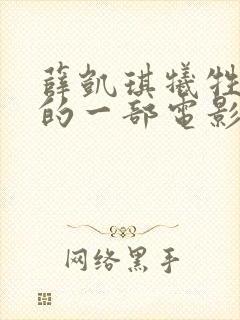 薛凯琪犧牲
的一部電影
网络黑手